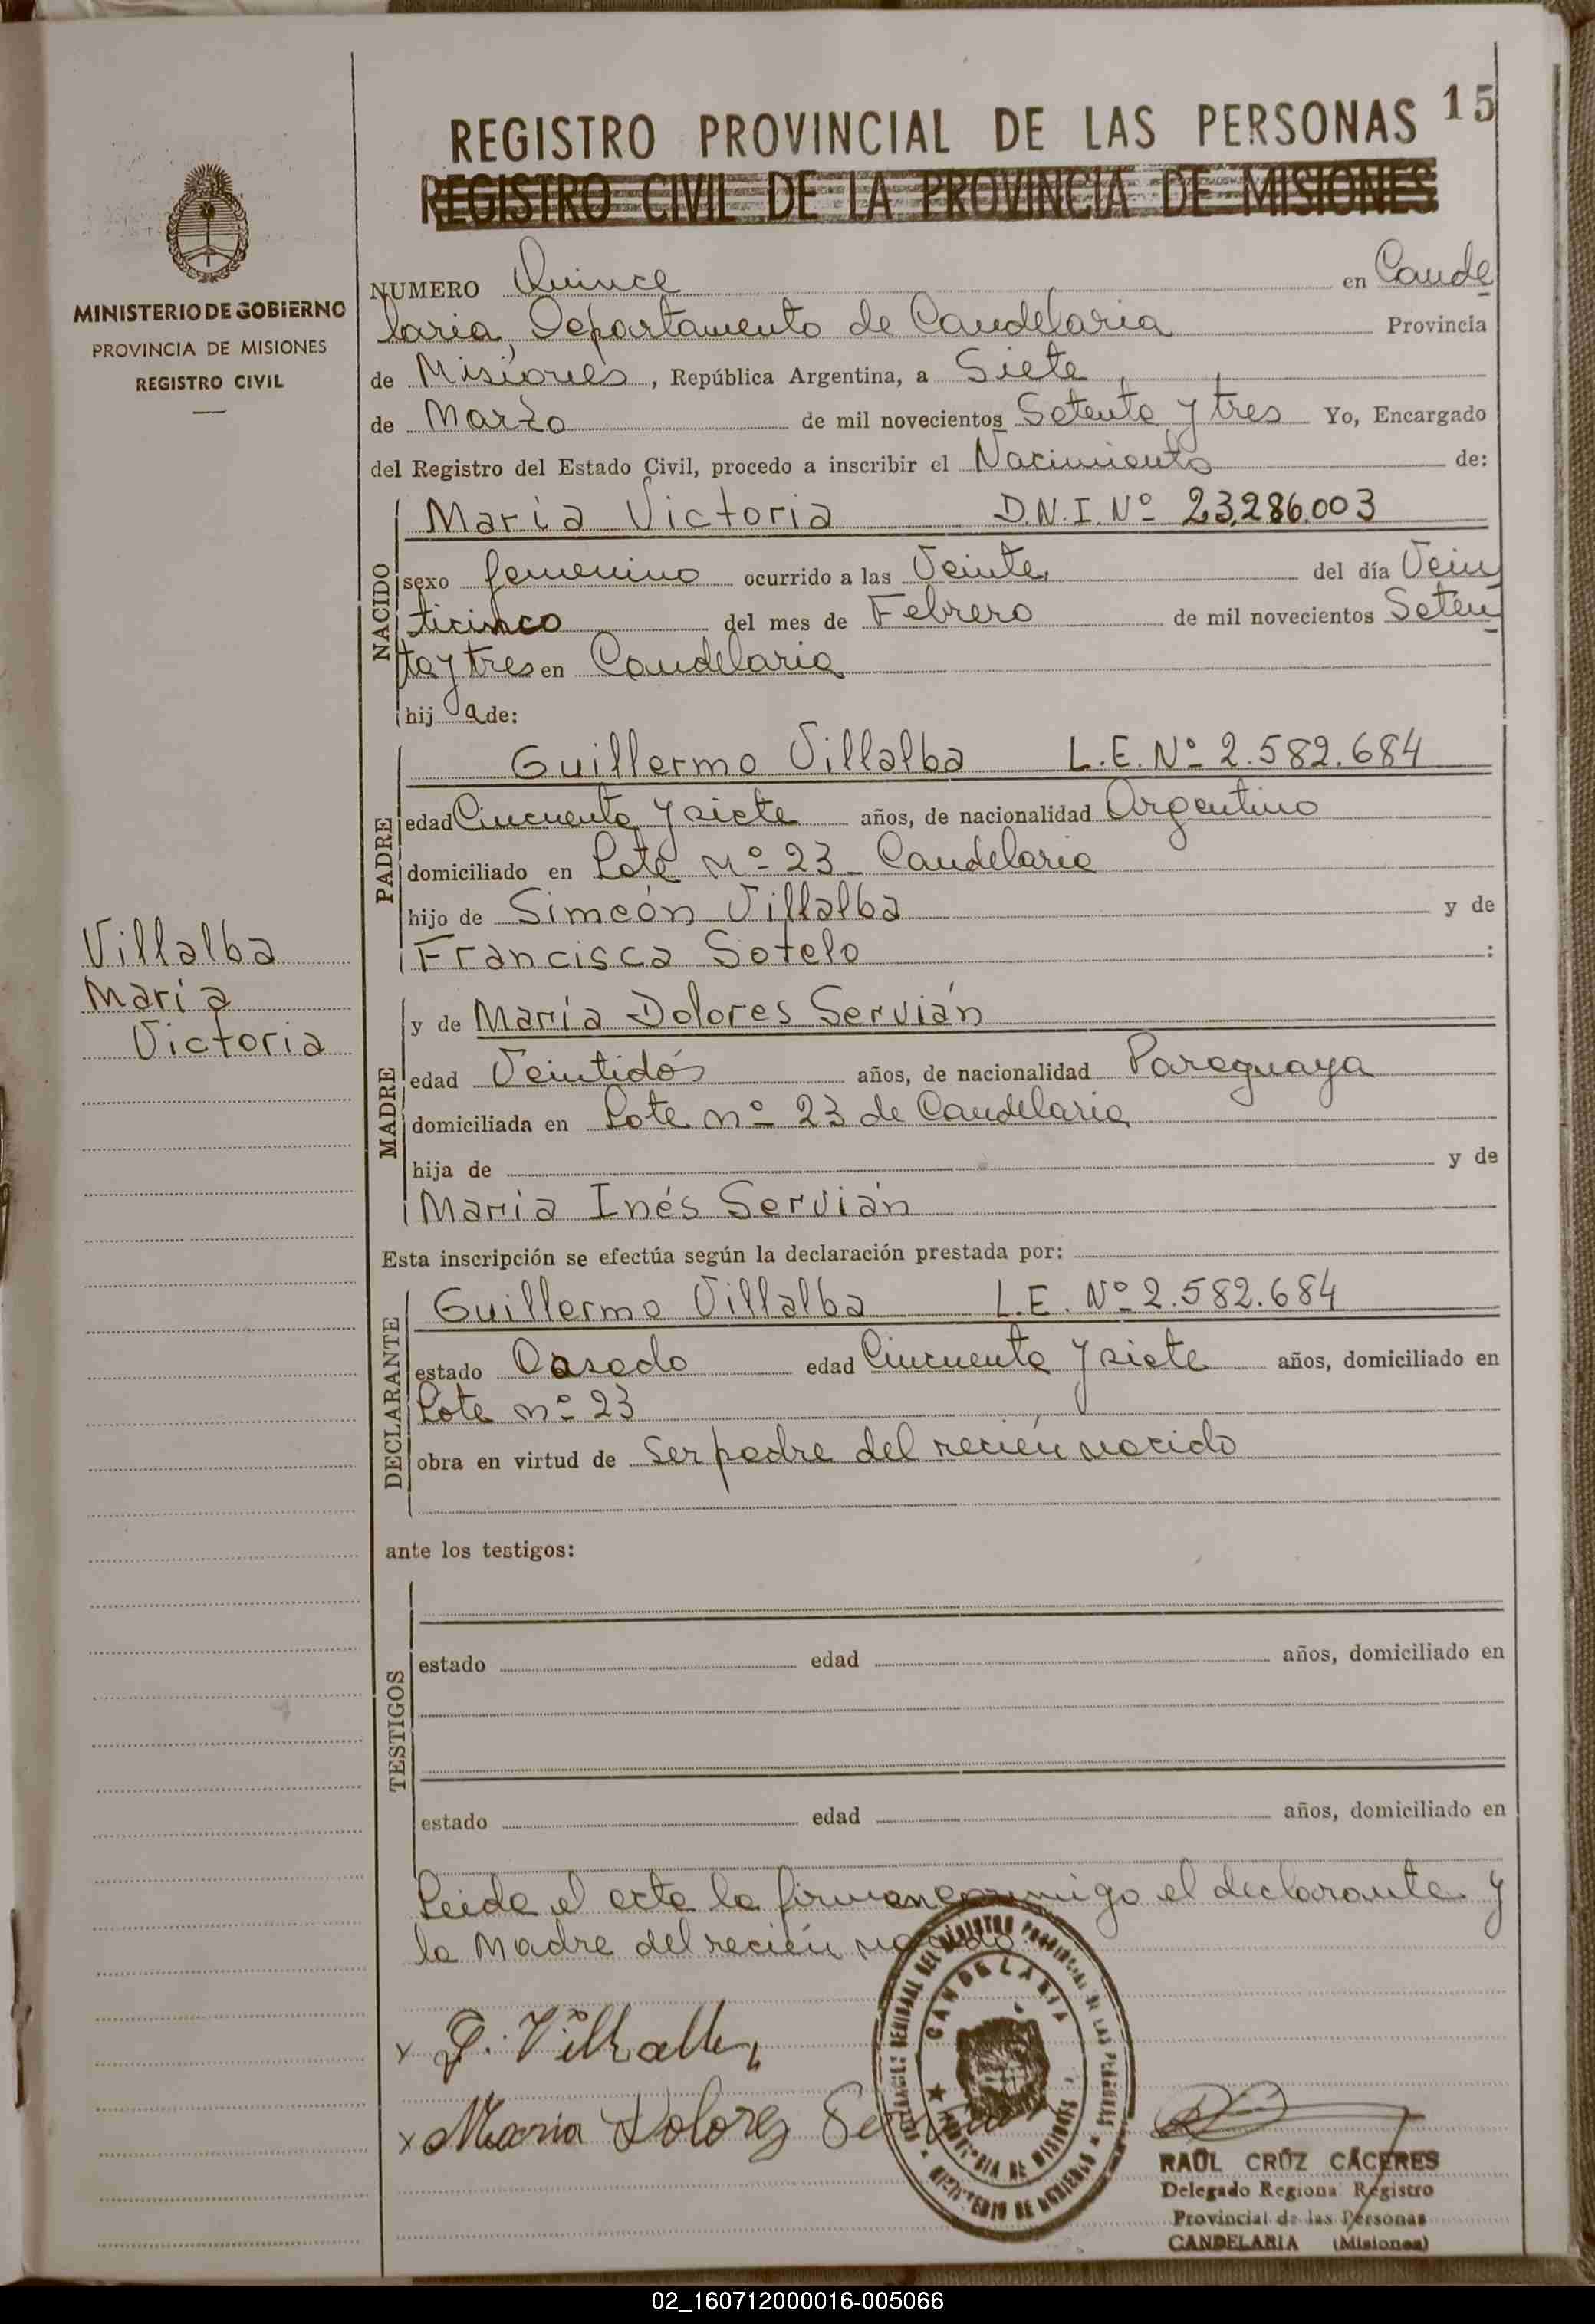 15
REGISTRO PROVINCIAL DE LAS PERSONAS
REGISTRO CIVIL DE LA PROVINCIA DE MISIONES
MINISTERIO DE GOBIERNO
PROVINCIA DE MISIONES
REGISTRO CIVIL
NUMERO Quince en Cande
laria, Departamento de Candelaria Provincia
de Misiones, República Argentina, a Siete
de Marzo de mil novecientos Setenta y tres Yo, Encargado
del Registro del Estado Civil, procedo a inscribir el Nacimiento de:
NACIDO
María Victoria D.N.I. Nº 23.286.003
sexo femenino ocurrido a las Veinte, del día Vein
ticinco del mes de Febrero de mil novecientos Seten
ta y tres en Candelaria
hij a de:
PADRE
Guillermo Villalba L.E. Nº 2.582.684
edad Cincuenta y siete años, de nacionalidad Argentino
domiciliado en Lote Nº 23 - Candelaria
hijo de Simeón Villalba y de
Francisca Sotelo :
Villalba
María
Victoria
MADRE
y de María Dolores Servián
edad Veintidós años, de nacionalidad Paraguaya
domiciliada en Lote nº 23 de Candelaria
hija de y de
María Inés Servián
Esta inscripción se efectúa según la declaración prestada por:
DECLARANTE
Guillermo Villalba L.E. Nº 2.582.684
estado Casado edad Cincuenta y siete años, domiciliado en
Lote nº 23
obra en virtud de Ser padre del recién nacido
ante los testigos:
TESTIGOS
estado edad años, domiciliado en
estado edad años, domiciliado en
Leida el acta la firman conmigo el declarante y
la Madre del recién nacido
CANDELARIA
PROVINCIA DE MISIONES
MINISTERIO DE GOBIERNO
G. Villalba
María Dolores Servián
RAÚL CRÚZ CÁCERES
Delegado Regional Registro
Provincial de las Personas
CANDELARIA (Misiones)
02_160712000016-005066